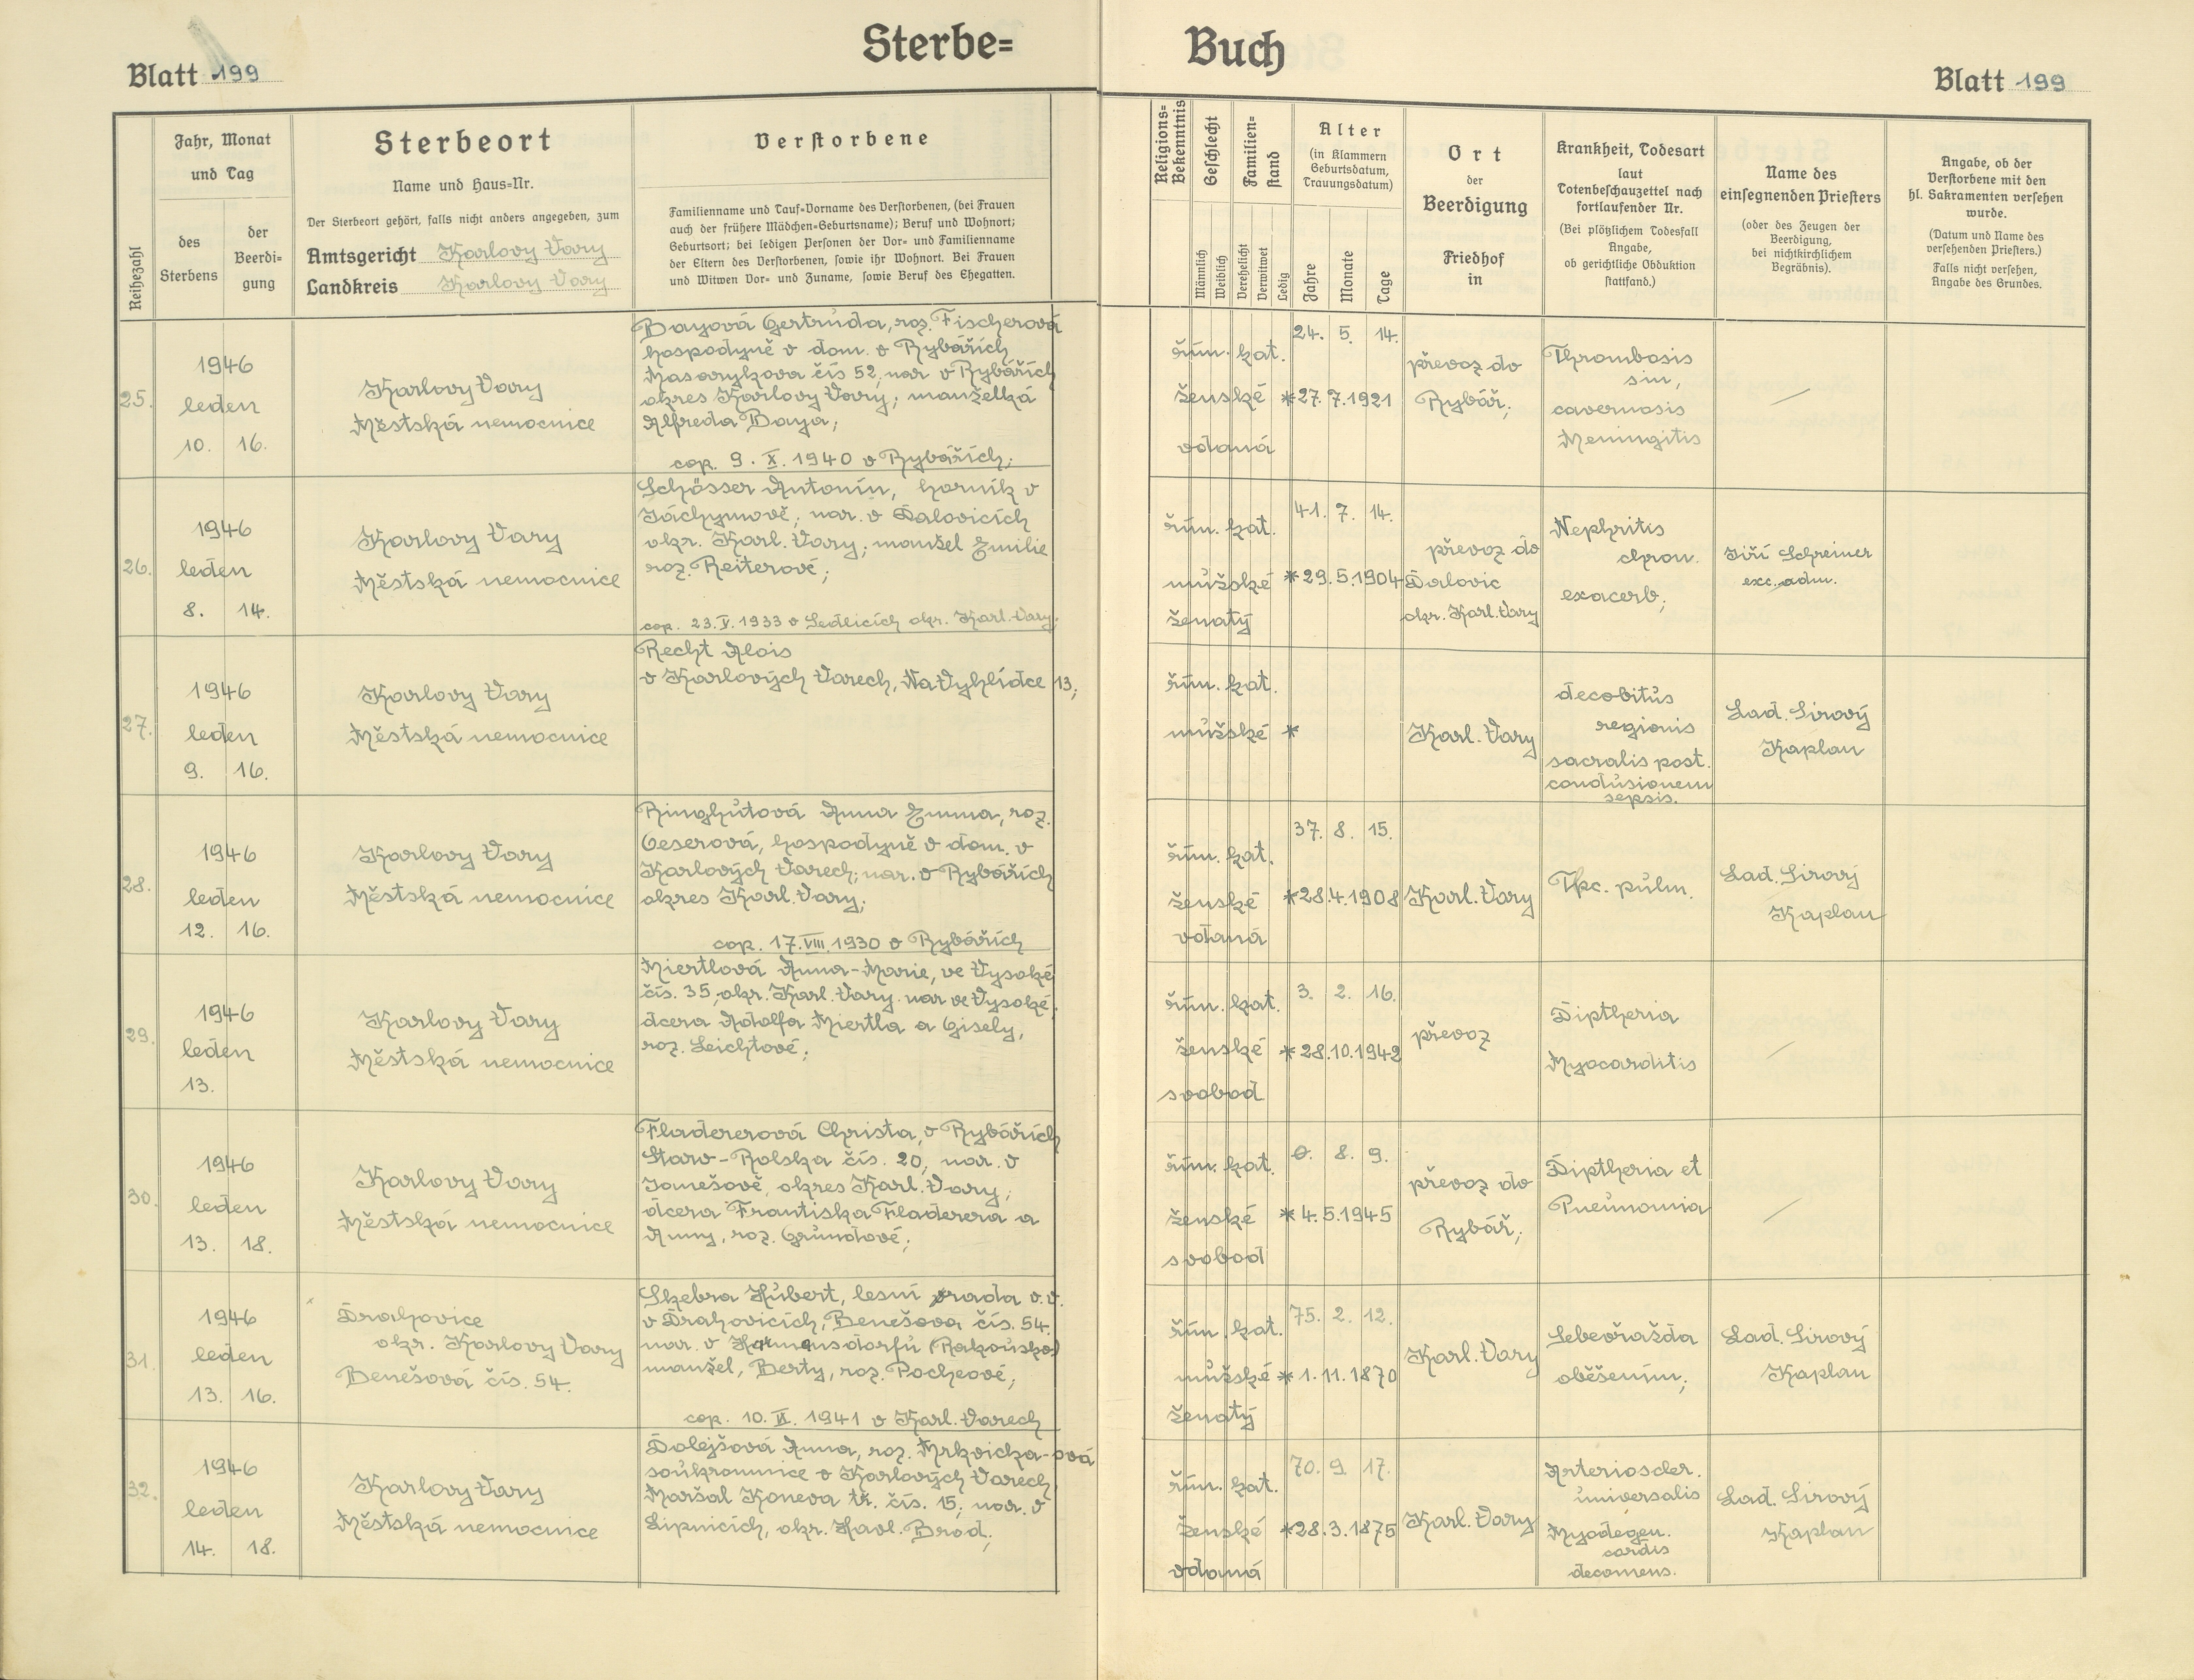 Sterbe= Buch
Blatt 199
Blatt 199
Reihezahl
Jahr, Monat
und Tag
des
Sterbens
der
Beerdi-
gung
Sterbeort
Name und Haus-Nr.
Der Sterbeort gehört, falls nicht anders angegeben, zum
Amtsgericht Karlovy Vary
Landkreis Karlovy Vary
Verstorbene
Familienname und Tauf-Vorname des Verstorbenen, (bei Frauen
auch der frühere Mädchen-Geburtsname); Beruf und Wohnort;
Geburtsort; bei ledigen Personen der Vor- und Familienname
der Eltern des Verstorbenen, sowie ihr Wohnort. Bei Frauen
und Witwen Vor- und Zuname, sowie Beruf des Ehegatten.
Religions-
Bekenntnis
Geschlecht
Männlich
Weiblich
Familien-
stand
Verehelicht
Verwitwet
Ledig
Alter
(in Klammern
Geburtsdatum,
Trauungsdatum)
Jahre
Monate
Tage
Ort
der
Beerdigung
Friedhof
in
Krankheit, Todesart
laut
Totenbeschauzettel nach
fortlaufender Nr.
(Bei plötzlichem Todesfall
Angabe,
ob gerichtliche Obduktion
stattfand.)
Name des
einsegnenden Priesters
(oder des Zeugen der
Beerdigung,
bei nichtkirchlichem
Begräbnis).
Angabe, ob der
Verstorbene mit den
hl. Sakramenten versehen
wurde.
(Datum und Name des
versehenden Priesters.)
Falls nicht versehen,
Angabe des Grundes.
25.
1946
leden
10. 16.
Karlovy Vary
Městská nemocnice
Bayová Gertruda, roz. Fischerová
hospodyně v dom. v Rybářích
Masarykova čís 52, nar v Rybářích
okres Karlovy Vary; manželka
Alfreda Baya;
cop. 9. X. 1940 v Rybářích;
řím. kat.
ženské
vdaná
24. 5. 14.
*27.7.1921
převoz do
Rybář;
Thrombosis
sin,
cavernosis
Meningitis
26.
1946
leden
8. 14.
Karlovy Vary
Městská nemocnice
Schösser Antonín, horník v
Jáchymově; nar. v Dalovicích
okr. Karl. Vary; manžel Emilie
roz. Reiterové;
cop. 23. V. 1933 v Sedlicích okr. Karl. Vary;
řím. kat.
mužské
ženatý
41. 7. 14.
*29.5.1904
převoz do
Dalovic
okr. Karl. Vary
Nephritis
chron.
exacerb;
Jiří Schreiner
exc. adm.
27.
1946
leden
9. 16.
Karlovy Vary
Městská nemocnice
Recht Alois
v Karlových Varech, Na Vyhlídce 13;
řím. kat.
mužské
*
Karl. Vary
decobitus
regionis
sacralis post.
condusionem
sepsis.
Lad. Sirový
Kaplan
28.
1946
leden
12. 16.
Karlovy Vary
Městská nemocnice
Ringhutová Anna Emma, roz.
Oeserová, hospodyně v dom. v
Karlových Varech; nar. v Rybářích
okres Karl. Vary;
cop. 17. VIII. 1930 v Rybářích
řím. kat.
ženské
vdaná
37. 8. 15.
*28.4.1908
Karl. Vary
Tbc. pulm.
Lad. Sirový
Kaplan
29.
1946
leden
13.
Karlovy Vary
Městská nemocnice
Miertlová Anna-Marie, ve Vysoké
čís. 35, okr. Karl. Vary. nar ve Vysoké,
dcera Adolfa Miertla a Gisely,
roz. Leichtové;
řím. kat.
ženské
svobod
3. 2. 16.
*28.10.1942
převoz
Diptheria
Myocarditis
30.
1946
leden
13. 18.
Karlovy Vary
Městská nemocnice
Fladererová Christa, v Rybářích
Staro-Rolska čís. 20, nar. v
Janešově, okres Karl. Vary;
dcera Františka Fladerera a
Anny, roz. Grundové;
řím. kat.
ženské
svobod
0. 8. 9.
*4.5.1945
převoz do
Rybář;
Diptheria et
Pneumonia
31.
1946
leden
13. 16.
Drahovice
okr. Karlovy Vary
Benešová čís. 54.
Skebra Hubert, lesní rada v.v.
v Drahovicích, Benešova čís. 54.
nar. v Harmansdorfu (Rakousko)
manžel, Berty, roz. Pocheové;
cop. 10. II. 1941 v Karl. Varech
řím. kat.
mužské
ženatý
75. 2. 12.
*1.11.1870
Karl. Vary
Sebevražda
oběšením;
Lad. Sirový
Kaplan
32.
1946
leden
14. 18.
Karlovy Vary
Městská nemocnice
Dolejšová Anna, roz. Mrkvicka-ová
soukromnice v Karlových Varech
Maršal Koneva tř. čís. 15; nar. v
Lipnicích, okr. Havl. Brod;
řím. kat.
ženské
vdaná
70. 9. 17.
*28.3.1875
Karl. Vary
Arterioscler.
universalis
Myodegen.
cordis
decomens.
Lad. Sirový
Kaplan